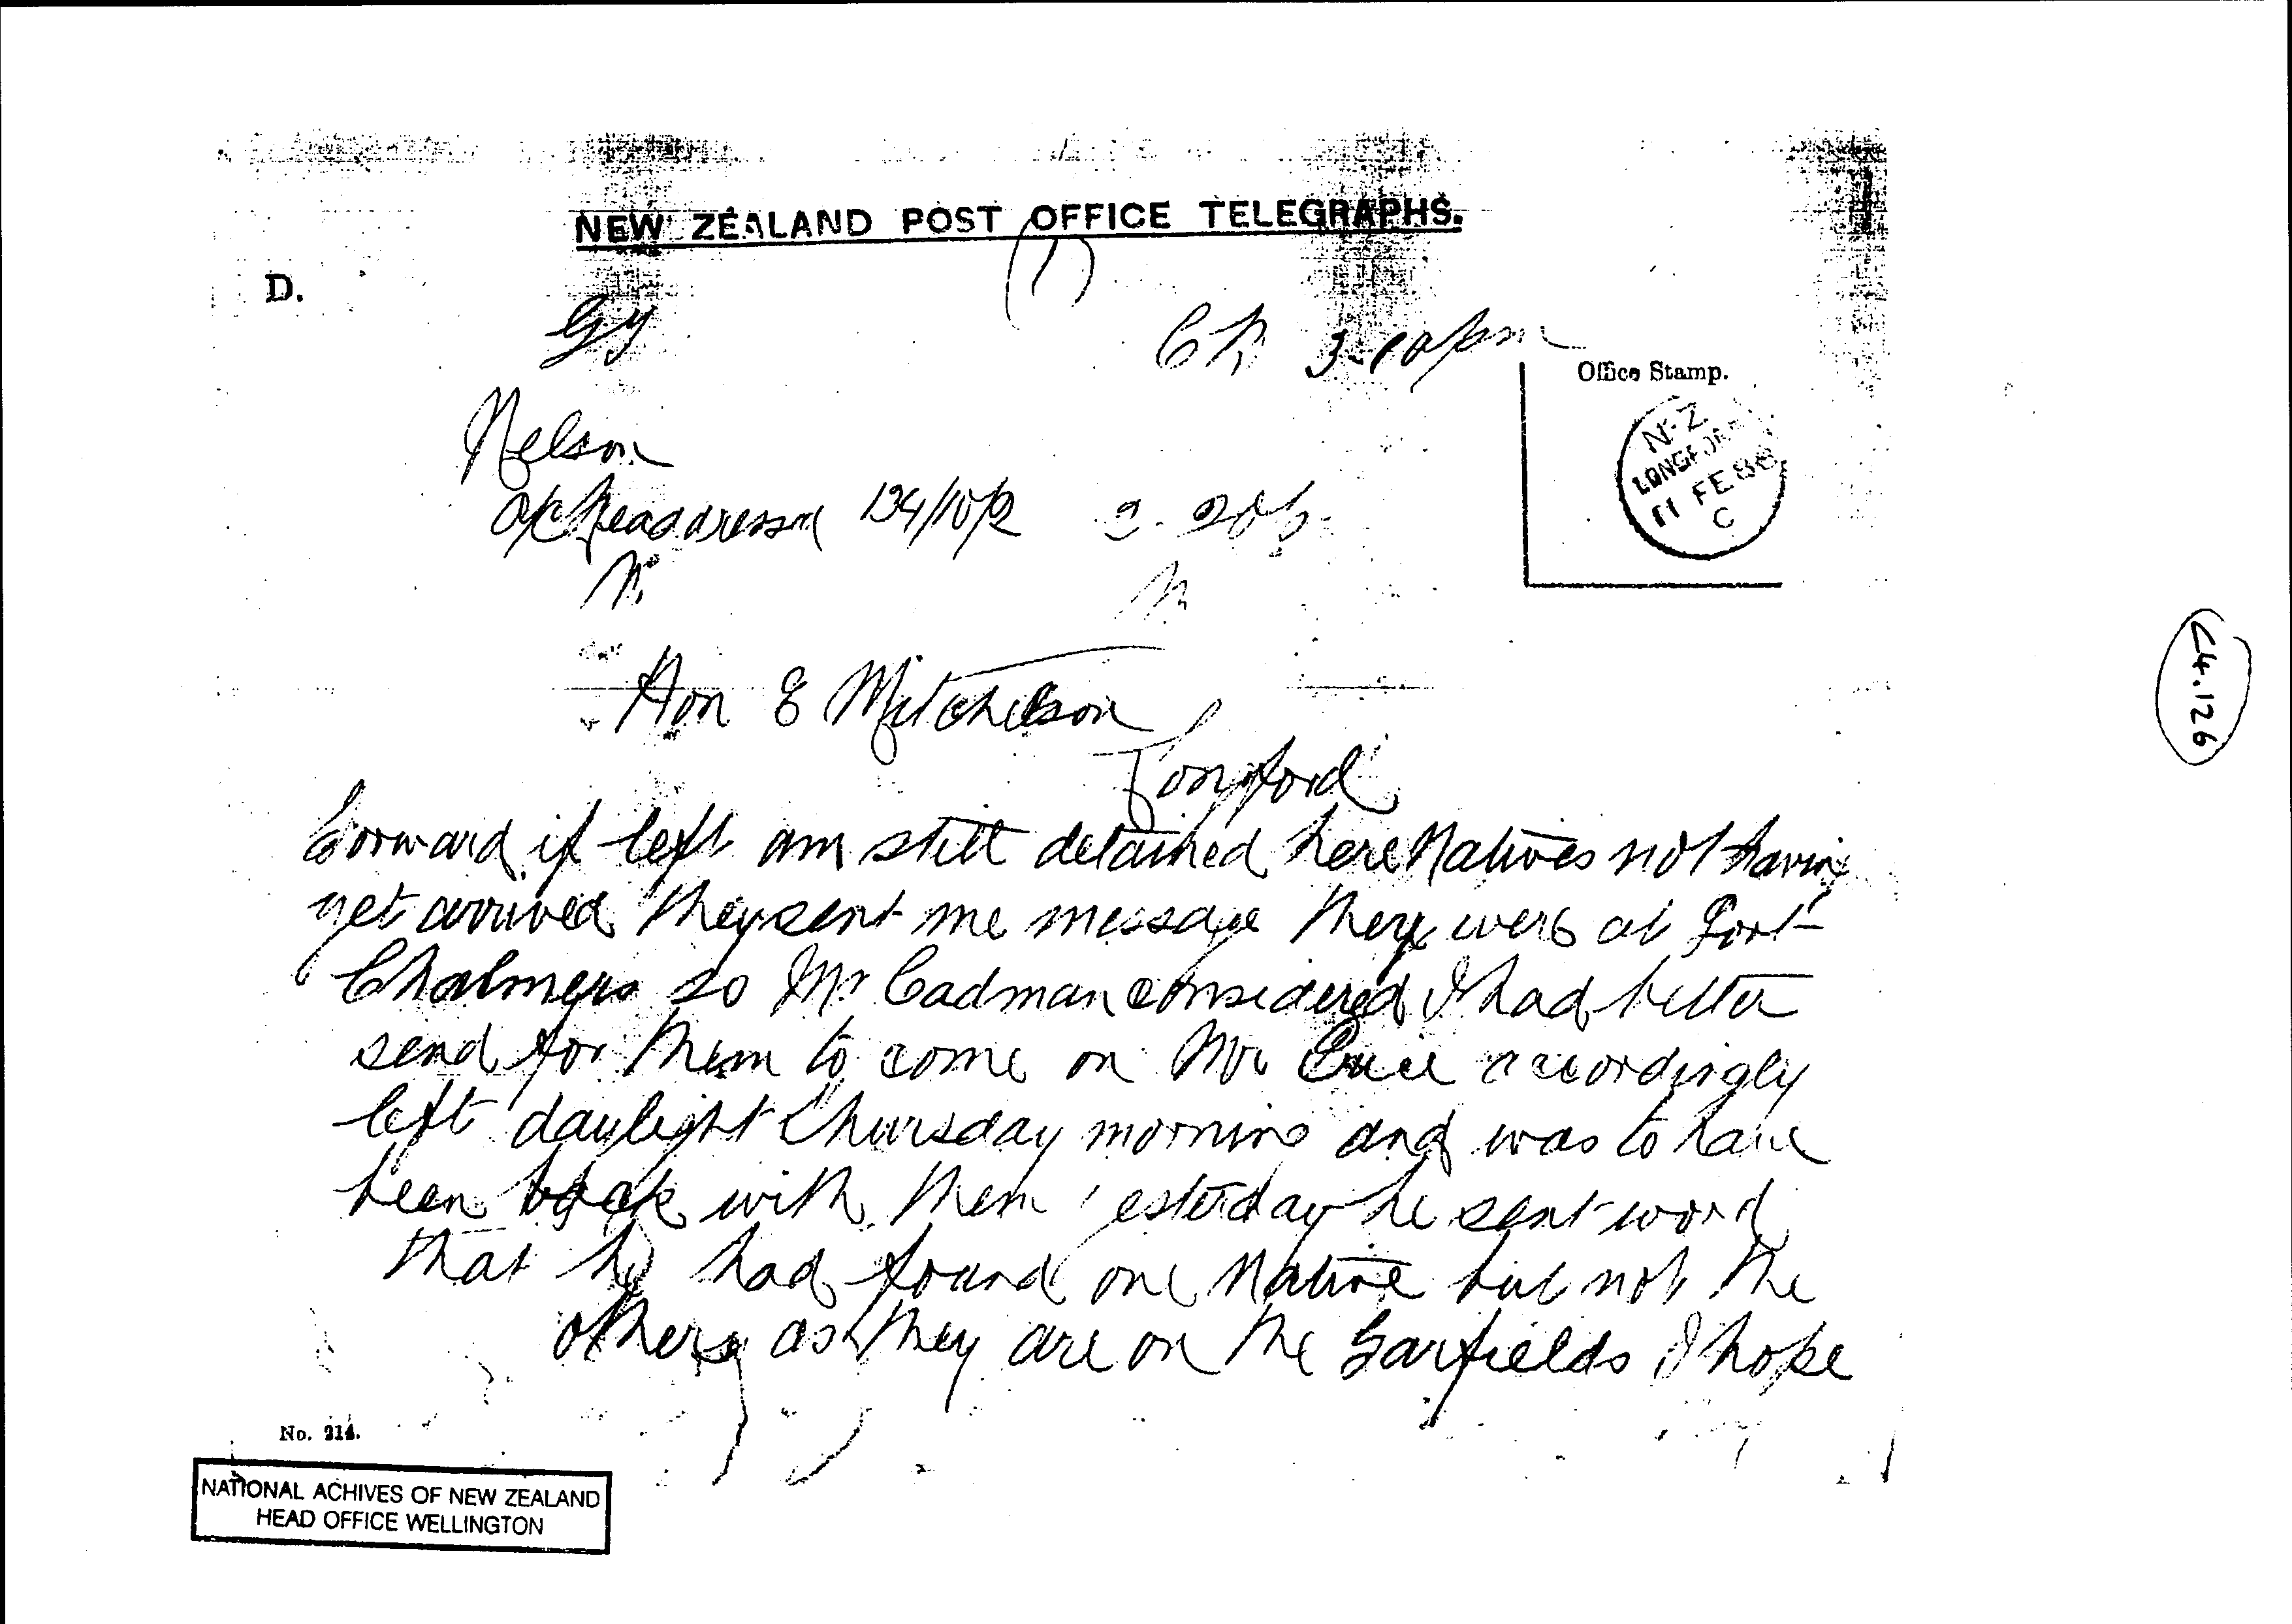 NEW ZEALAND POST OFFICE TELEGRAPHS.
(1)
D.
Gy
3-10pm
Office Stamp.
N.Z.
LONGFORD
11 FE 88
C
Nelson
134/10/2
Hon E Mitchelson
Longford
Forward if left am still detained here Natives not having
yet arrived they sent me message they were at Port
Chalmers so Mr Cadman considered I had better
send for them to come on Mr accordingly
left daylight Thursday morning and was to have
been back with them yesterday he sent word
that he had found one Native but not the
others as they are on the Garfields I hope
No. 214.
NATIONAL ACHIVES OF NEW ZEALAND
HEAD OFFICE WELLINGTON
C4.126